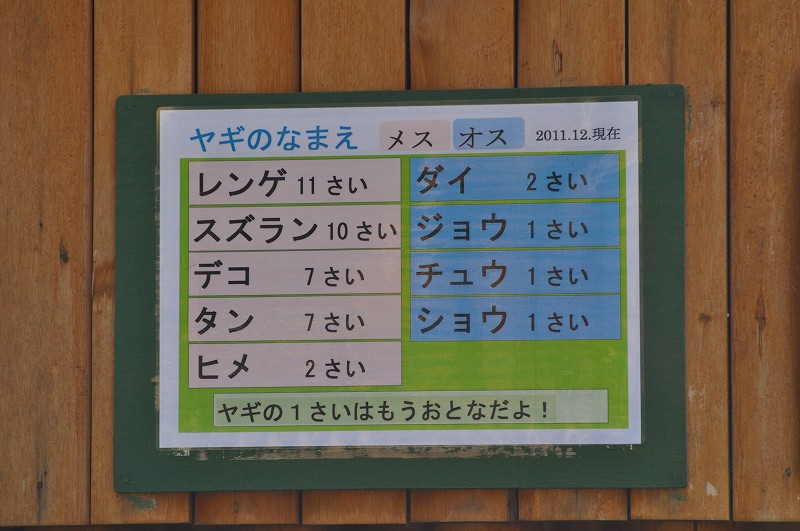 ヤギのなまえ メス オス 2011.12.現在
レンゲ 11さい
スズラン 10さい
デコ 7さい
タン 7さい
ヒメ 2さい
ダイ 2さい
ジョウ 1さい
チュウ 1さい
ショウ 1さい
ヤギの1さいはもうおとなだよ!